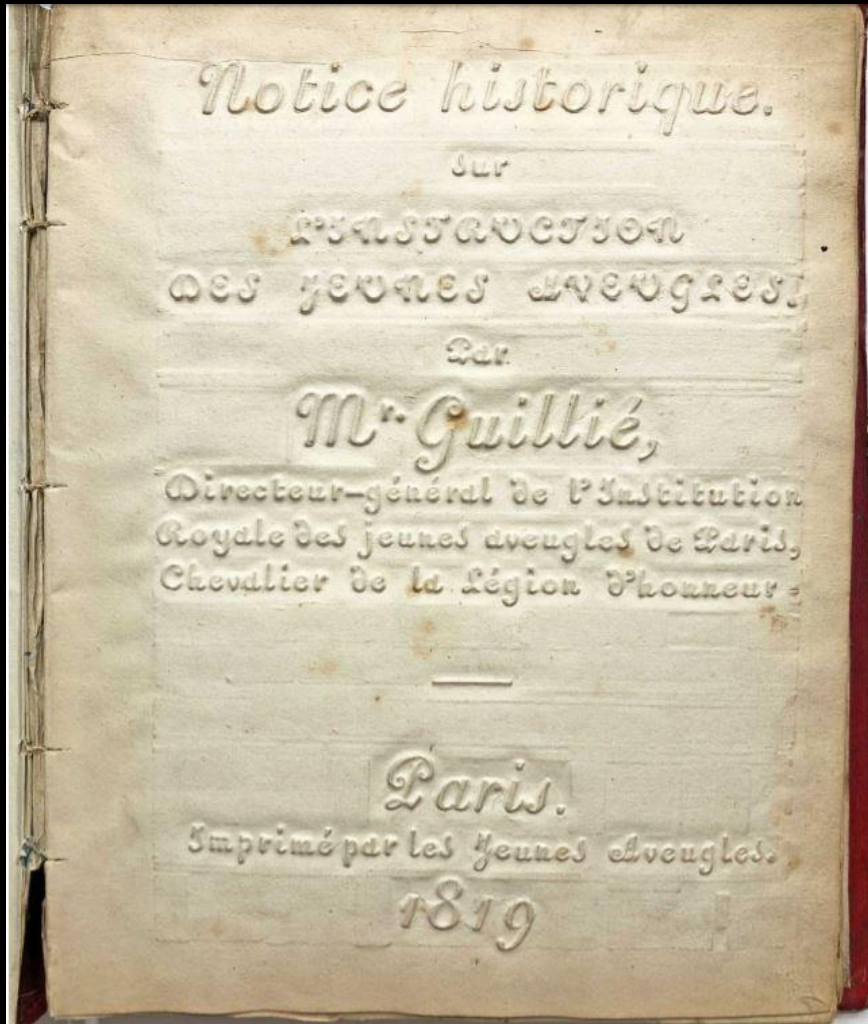 Notice historique.
Sur
L'INSTRUCTION
DES JEUNES AVEUGLES.
Par
Mr. Guillié,
Directeur-général de l'Institution
Royale des jeunes aveugles de Paris,
Chevalier de la Légion d'honneur.
Paris.
Imprimé par les Jeunes Aveugles.
1819